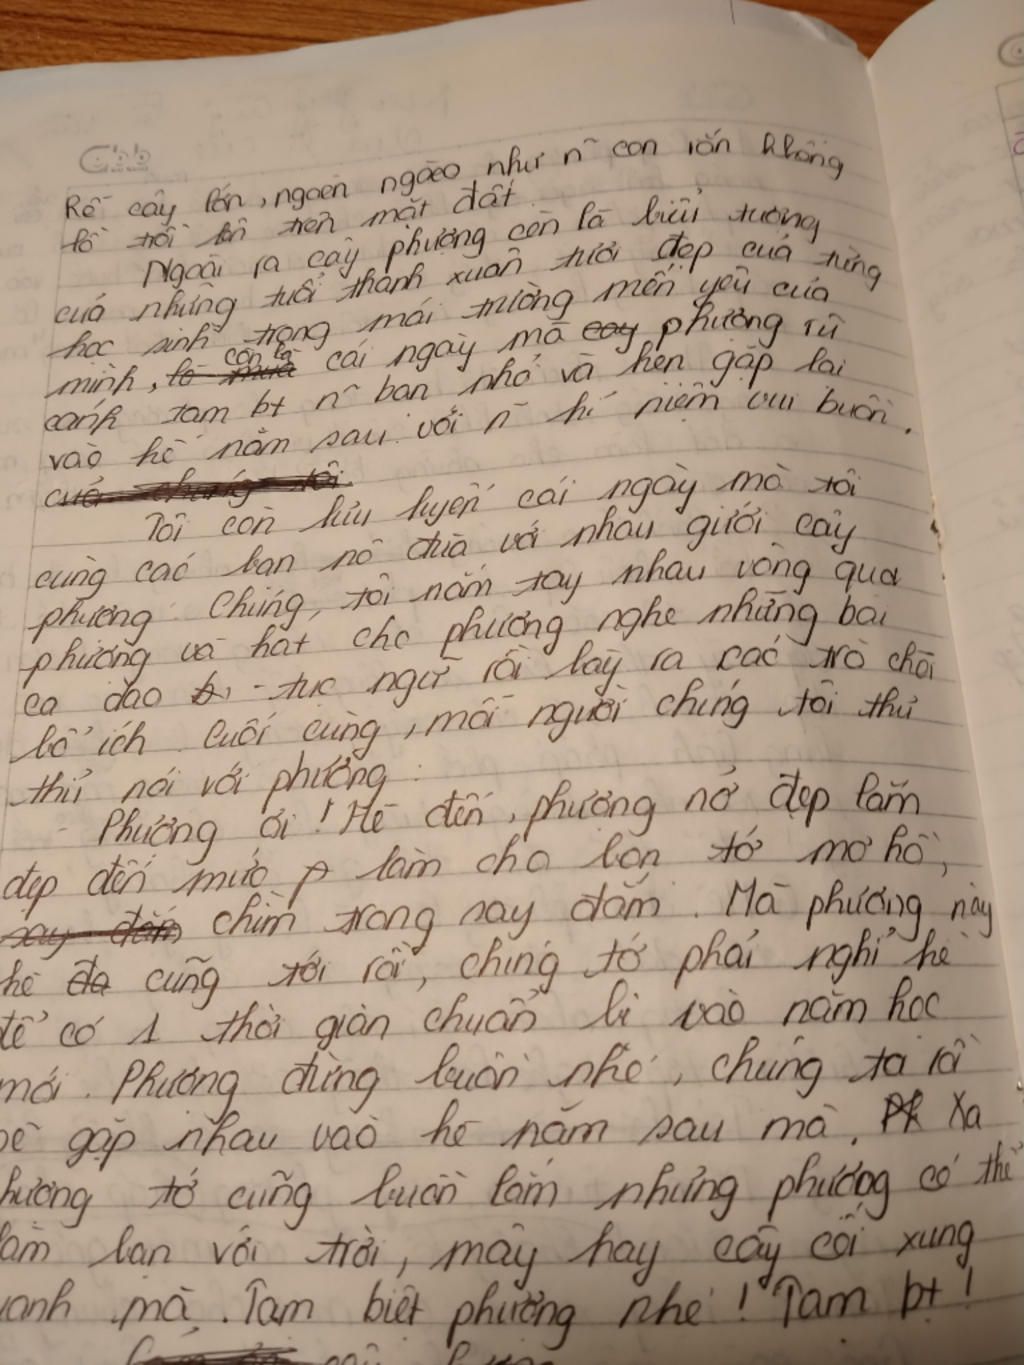 Rễ cây lớn, ngoằn ngoèo như n~ con rắn khổng
lồ trồi lên trên mặt đất.
Ngoài ra cây phượng còn là biểu tượng
của những tuổi thanh xuân tươi đẹp của từng
học sinh trong mái trường mến yêu của
mình, còn là cái ngày mà phượng rũ
cánh tạm bt n~ bạn nhỏ và hẹn gặp lại
vào hè năm sau với n~ kỉ niệm vui buồn.
của chúng tôi.
Tôi còn lưu luyến cái ngày mà tôi
cùng các bạn nô đùa với nhau giưới cây
phượng. Chúng tôi nắm tay nhau vòng qua
phượng và hát cho phượng nghe những bài
ca dao - tục ngữ rồi bày ra các trò chơi
bổ ích. Cuối cùng, mỗi người chúng tôi thủ
thỉ nói với phượng:
- Phượng ơi! Hè đến, phượng nở đẹp lắm
đẹp đến mức p làm cho bọn tớ mơ hồ,
say đắm chìm trong say đắm. Mà phượng này
hè đã cũng tới rồi, chúng tớ phải nghỉ hè
để có 1 thời gian chuẩn bị vào năm học
mới. Phượng đừng buồn nhé, chúng ta rồi
sẽ gặp nhau vào hè năm sau mà. Xa
phượng tớ cũng buồn lắm nhưng phượng có thể
làm bạn với trời, mây hay cây cối xung
quanh mà. Tạm biệt phượng nhé! Tạm bt!